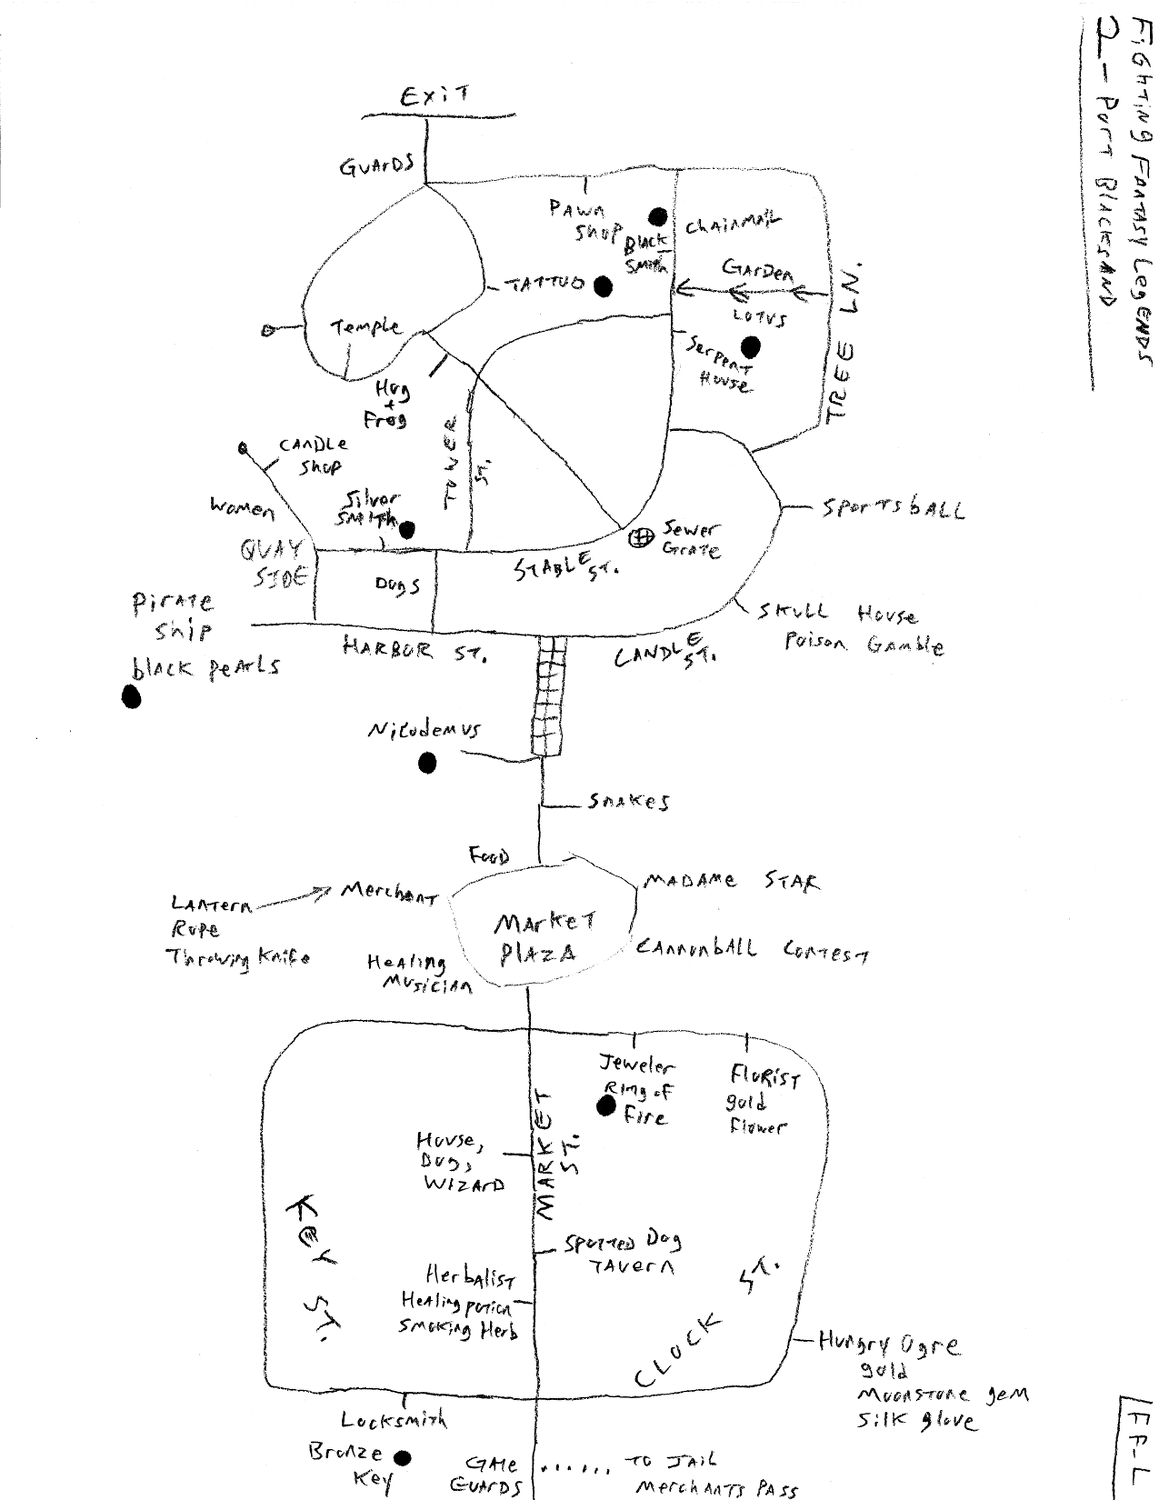 Fighting Fantasy Legends
2 - Port Blacksand
Exit
Guards
Pawn
Shop
Black
Smith
Chainmail
Garden
Lotus
Tattoo
Temple
Serpent
House
TREE LN.
Hog
+
Frog
TOWER
ST.
Candle
Shop
Women
Silver
Smith
QUAY
SIDE
Dogs
STABLE ST.
Sewer
Grate
Sportsball
Pirate
Ship
black pearls
HARBOR ST.
CANDLE ST.
Skull House
Poison Gamble
Nicodemus
Snakes
Food
Merchant
Lantern
Rope
Throwing Knife
MADAME STAR
Market
Plaza
Cannonball Contest
Healing
Musician
Jeweler
Ring of
Fire
Florist
gold
Flower
MARKET
ST.
House,
Dog,
WIZARD
KEY ST.
Spotted Dog
Tavern
Herbalist
Healing potion
Smoking Herb
CLOCK ST.
Hungry Ogre
gold
Moonstone gem
Silk glove
Locksmith
Bronze
Key
Gate
Guards
...... TO JAIL
Merchants Pass
FF-L